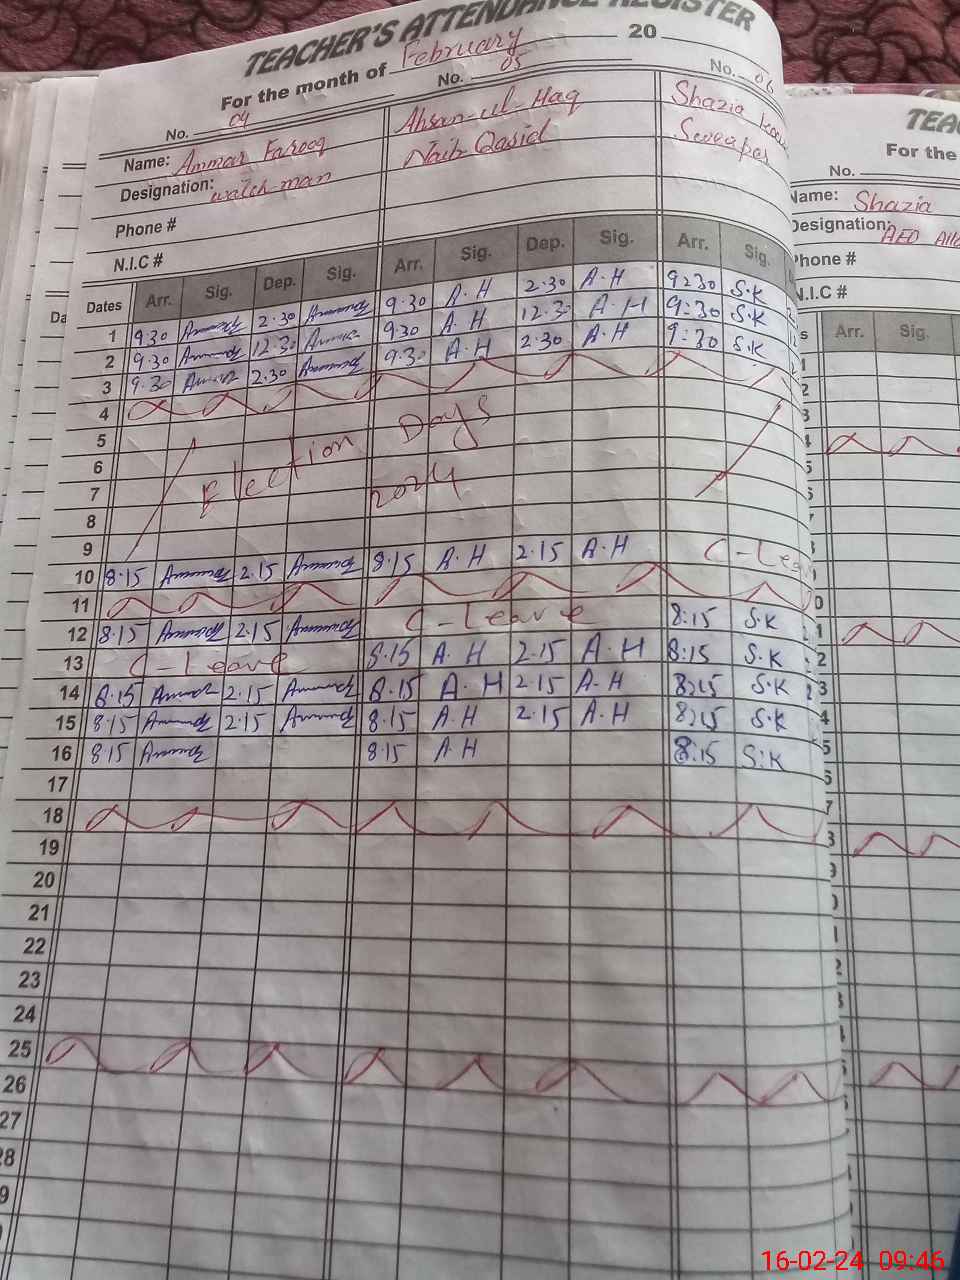 TEACHER'S ATTENDANCE REGISTER
For the month of February 20
No. 04 No. 05 No. 06
Name: Ammar Farooq Ahsan-ul-Haq Shazia
Designation: watch man Naib Qasid Sweaper
Phone #
N.I.C #
Dates Arr. Sig. Dep. Sig. Arr. Sig. Dep. Sig. Arr. Sig.
1 9.30 2.30 9.30 A.H 2.30 A.H 9:30 S.K
2 9.30 12.30 9.30 A.H 12.30 A.H 9:30 S.K
3 9.30 2.30 9.30 A.H 2.30 A.H 9:30 S.K
4
5 Election Days
6
7 2024
8
9
10 8.15 2.15 8.15 A.H 2.15 A.H C-Leave
11
12 8.15 2.15 C-Leave 8:15 S.K
13 C-Leave 8.15 A.H 2.15 A.H 8:15 S.K
14 8.15 2.15 8.15 A.H 2.15 A.H 8:15 S.K
15 8.15 2.15 8.15 A.H 2.15 A.H 8:15 S.K
16 8.15 8.15 A.H 8:15 S.K
17
18
19
20
21
22
23
24
25
26
27
28
TEAC
For the
No.
Name: Shazia
Designation: AEO
Phone #
N.I.C #
Arr. Sig.
16-02-24 09:46